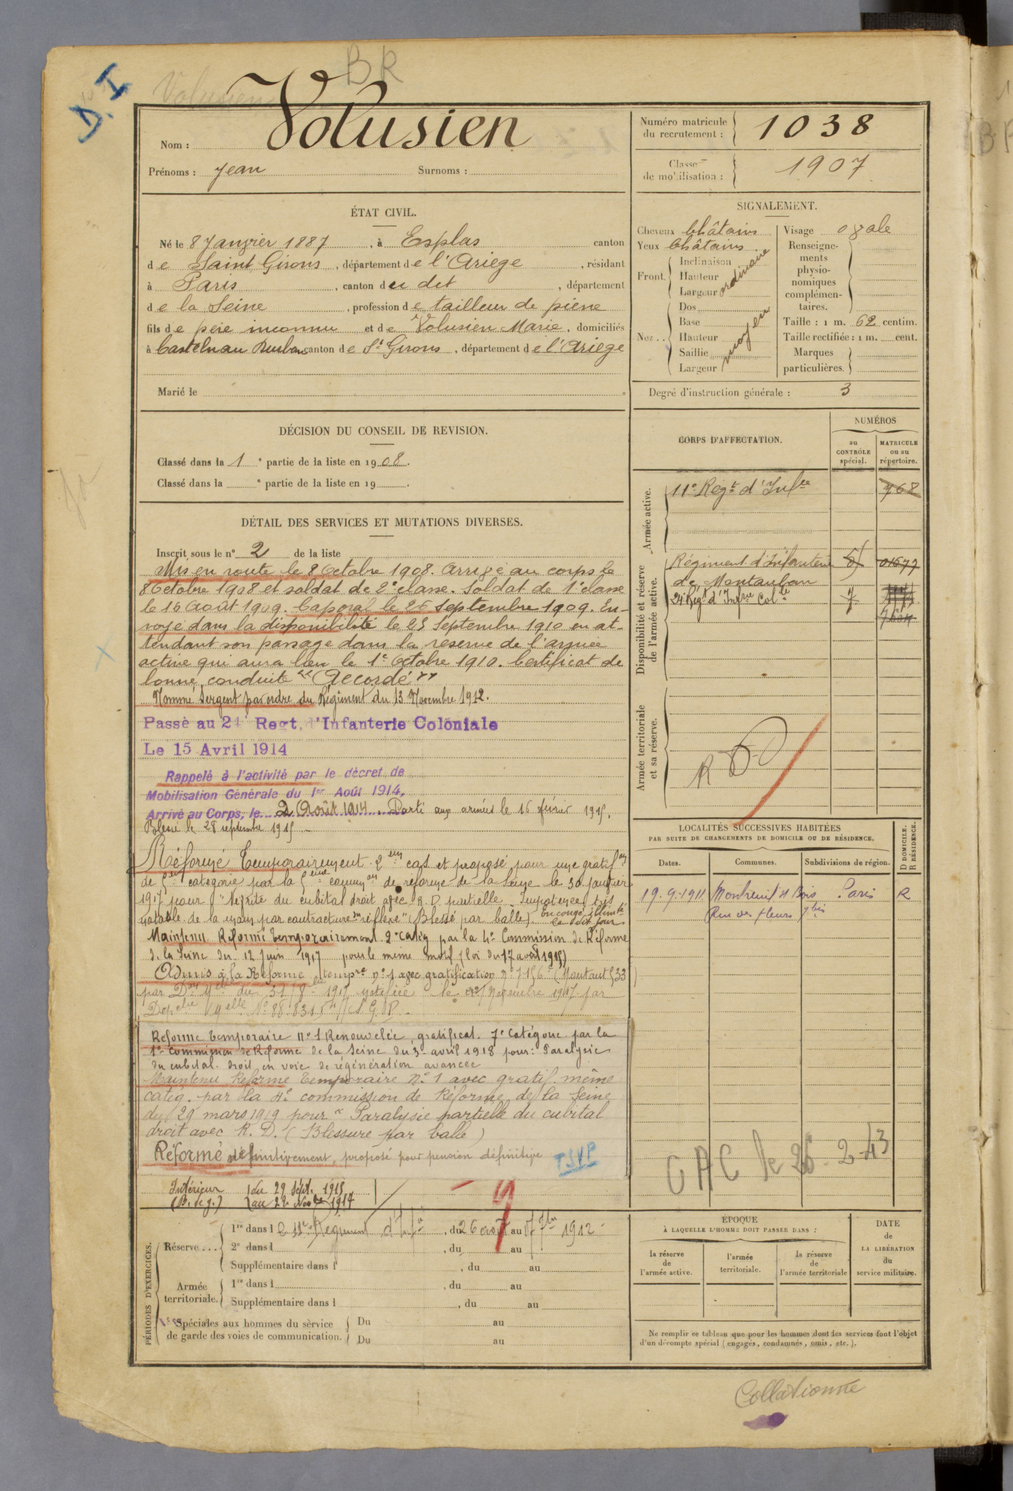 BR
D.I
Volusien
Nom : Volusien
Prénoms : Jean Surnoms :
Numéro matricule du recrutement : 1038
Classe de mobilisation : 1907
ÉTAT CIVIL.
Né le 8 Janvier 1887, à Esplas canton
de Saint Girons, département de l'Ariège, résidant
à Paris, canton du dit, département
de la Seine, profession de tailleur de pierre
fils de père inconnu et de Volusien Marie, domiciliés
à Castelnau Durban canton de St Girons, département de l'Ariège
Marié le
SIGNALEMENT.
Cheveux Châtains
Yeux Châtains
Front. Inclinaison
Hauteur
Largeur
ordinaire
Nez .. Dos
Base
Hauteur
Saillie
Largeur
moyen
Visage ovale
Renseigne-
ments
physio-
nomiques
complémen-
taires.
Taille : 1 m. 62 centim.
Taille rectifiée : 1 m. cent.
Marques
particulières.
Degré d'instruction générale : 3
DÉCISION DU CONSEIL DE REVISION.
Classé dans la 1e partie de la liste en 1908.
Classé dans la e partie de la liste en 19
DÉTAIL DES SERVICES ET MUTATIONS DIVERSES.
Inscrit sous le n° 2 de la liste
Mis en route le 8 Octobre 1908. Arrivé au corps le
8 Octobre 1908 et soldat de 2e classe. Soldat de 1e classe
le 16 août 1909. Caporal le 25 Septembre 1909. En-
voyé dans la disponibilité le 25 Septembre 1910 en at-
tendant son passage dans la réserve de l'armée
active qui aura lieu le 1e Octobre 1910. Certificat de
bonne conduite "Accordé"
Nommé Sergent par ordre du Régiment du 13 Novembre 1912.
Passé au 21 Regt. d'Infanterie Coloniale
Le 15 Avril 1914
Rappelé à l'activité par le décret de
Mobilisation Générale du 1er Août 1914.
Arrivé au Corps, le 2 Août 1914. Parti aux armées le 16 février 1915.
Blessé le 28 septembre 1915
Réformé Temporairement 2em cat et proposé pour une gratifon
de catégorie par la common de réforme de la Seine le 30 janvier
1917 pour névrite du cubital droit avec R.D. partielle. Impotence très
notable de la main par contracture réflexe (Blessé par balle)
Maintenu Réformé temporairement 2e catég par la 4e Commission de Réforme
de la Seine du 12 juin 1917 pour le même motif (loi du 17 août 1915)
Admis à la Réforme tempre n° 1 avec gratification
par Don Melle du 31 8 1917 notifiée le Novembre 1917 par
Réforme temporaire N° 1 Renouvelée, gratificat. 7e Catégorie par la
1e Commission de Réforme de la Seine du 3 avril 1918 pour : Paralysie
du cubital droit, en voie de régénération avancée
Maintenu Réforme Temporaire N° 1 avec gratif. même
catég. par la 4e commission de Réforme de la Seine
du 29 mars 1919 pour "Paralysie partielle du cubital
droit avec R. D. (Blessure par balle)
Réformé définitivement, proposé pour pension définitive TSVP
Intérieur du 29 Sept. 1915
au 22 Novbre 1917
CORPS D'AFFECTATION.
NUMÉROS
DU CONTRÔLE spécial.
MATRICULE ou au répertoire.
Armée active.
11e Régt d'Infie 768
Disponibilité et réserve de l'armée active.
Régiment d'Infanterie
de Montauban
21 Régt d'Infrie Colle
Armée territoriale et sa réserve.
LOCALITÉS SUCCESSIVES HABITÉES
PAR SUITE DE CHANGEMENTS DE DOMICILE OU DE RÉSIDENCE.
Dates. Communes. Subdivisions de région.
D DOMICILE. R RÉSIDENCE.
19-9-1911 Montreuil s/ Bois Paris R
Rue des fleurs 7 bis
CAC le 26-2-43
PÉRIODES D'EXERCICES.
Réserve.... 1re dans l Régiment d'Infie, du 26 août au 1912
2e dans l, du au
Supplémentaire dans l, du au
Armée territoriale. 1re dans l, du au
Supplémentaire dans l, du au
Spéciales aux hommes du service de garde des voies de communication. Du au
Du au
ÉPOQUE
À LAQUELLE L'HOMME DOIT PASSER DANS :
la réserve de l'armée active.
l'armée territoriale.
la réserve de l'armée territoriale
DATE de LA LIBÉRATION du service militaire.
Ne remplir ce tableau que pour les hommes dont les services font l'objet
d'un décompte spécial (engagés, condamnés, omis, etc.).
Collationné